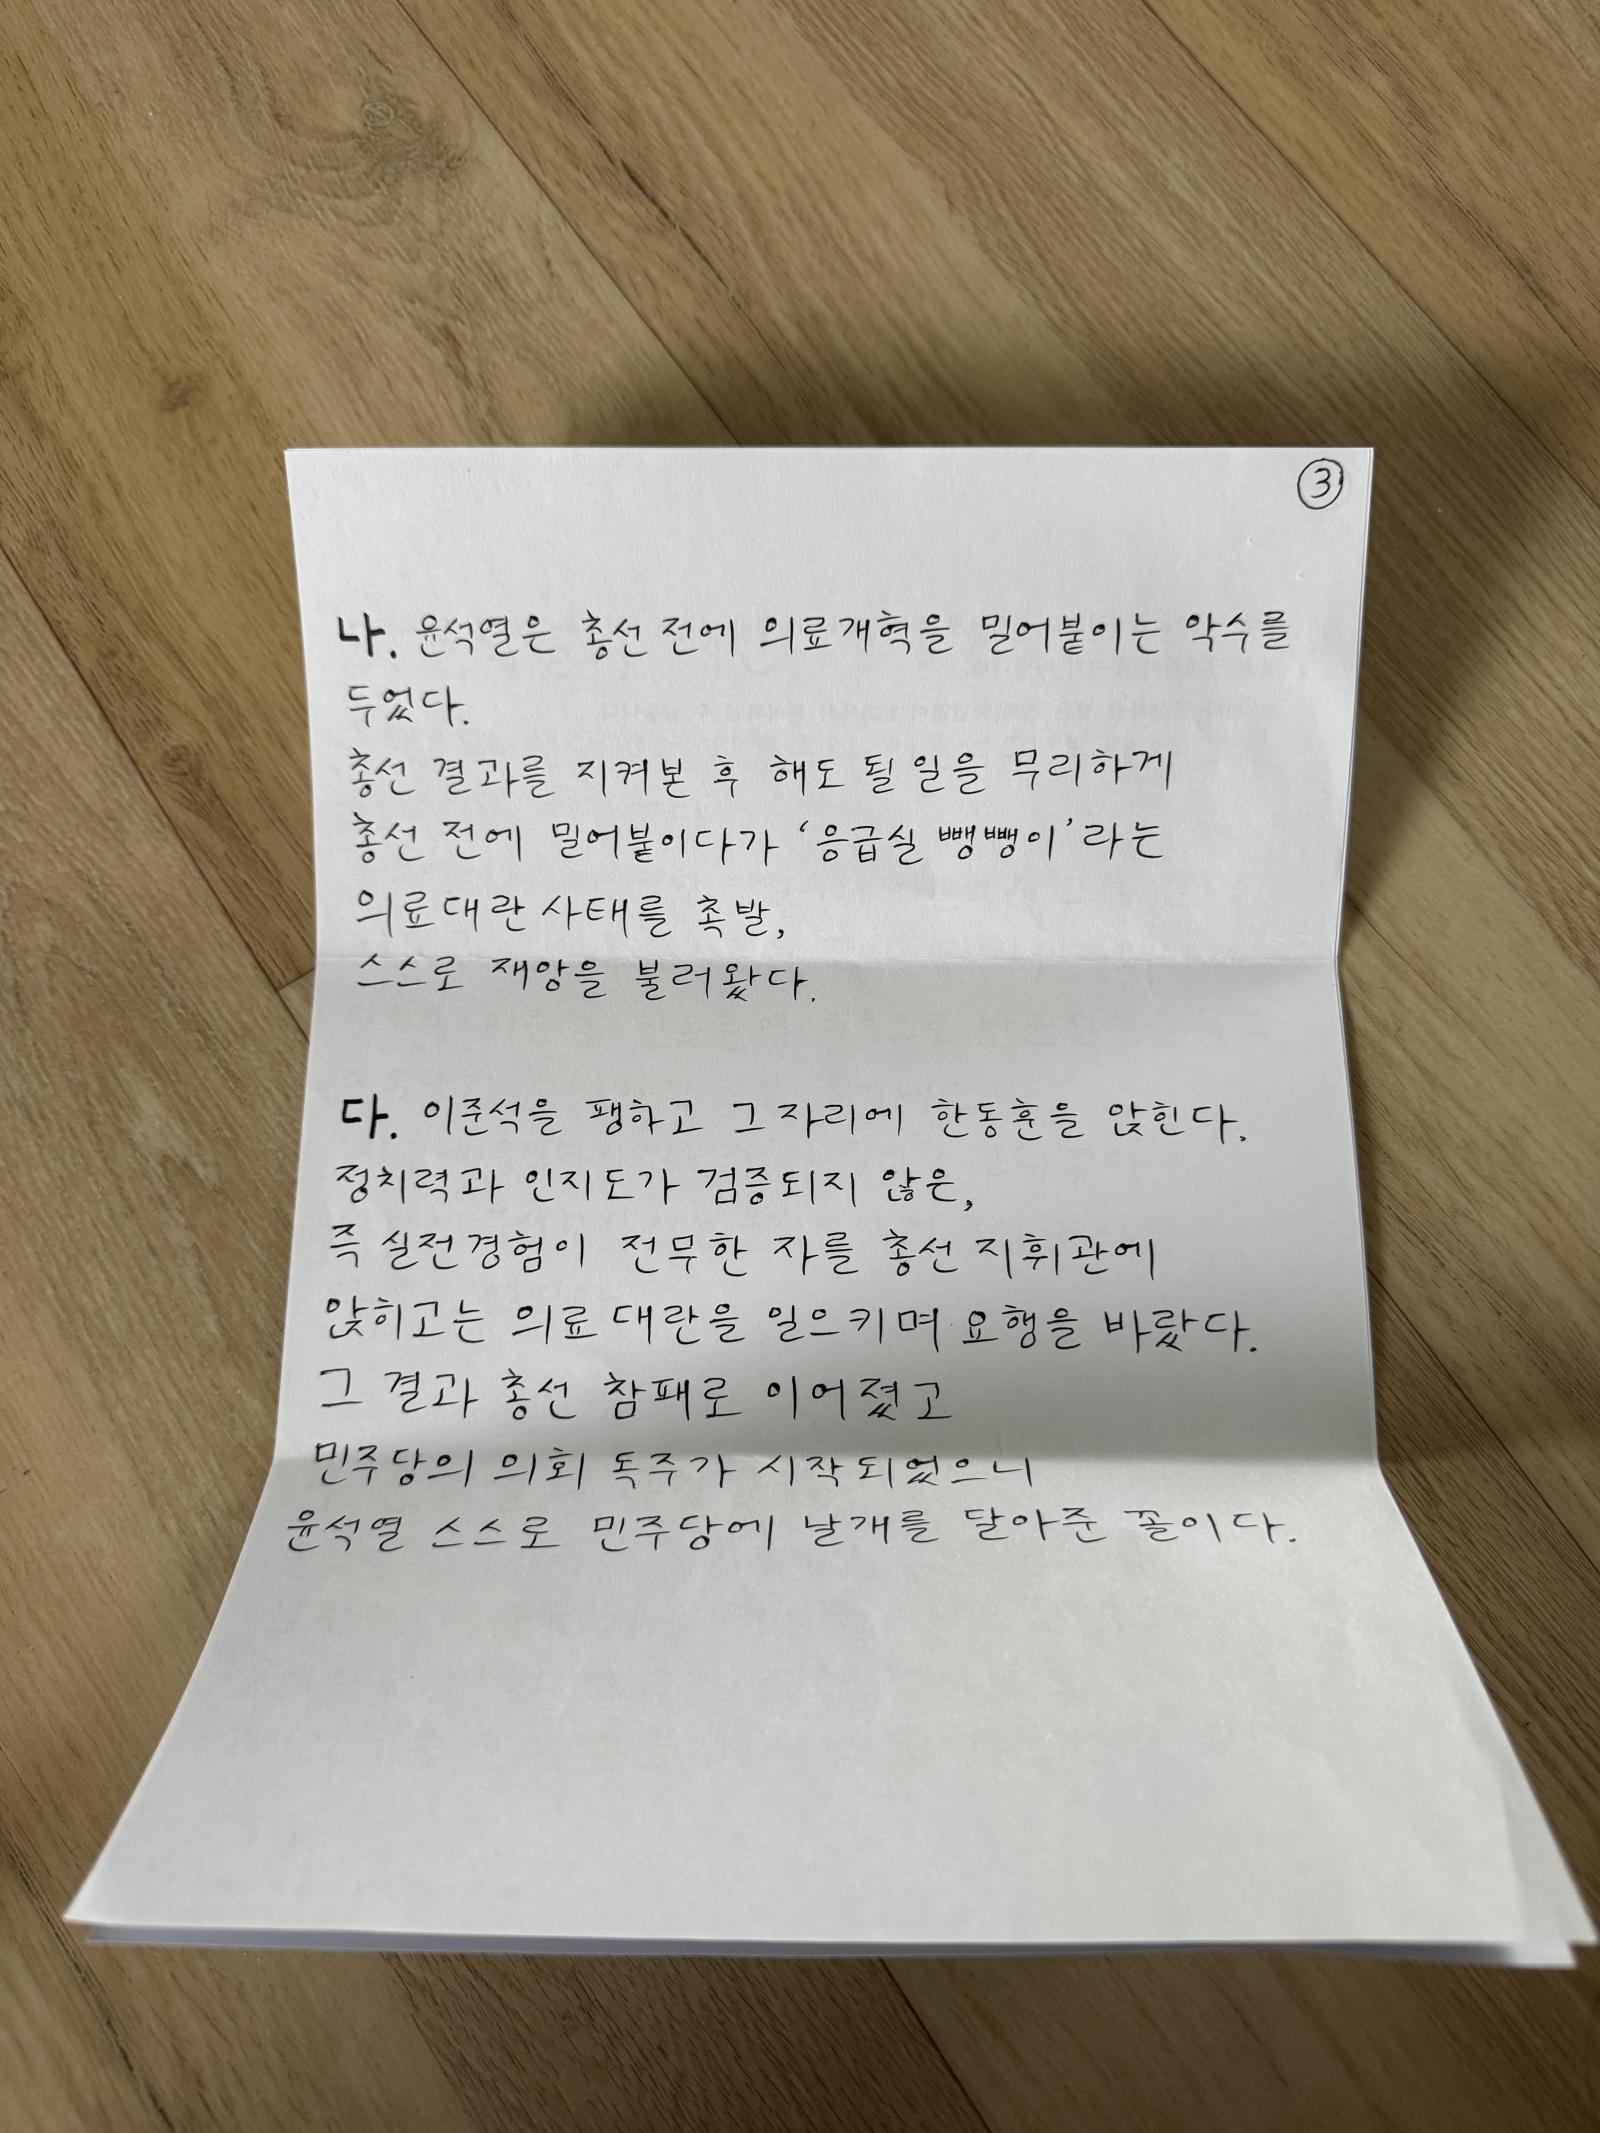 ③
나. 윤석열은 총선 전에 의료개혁을 밀어붙이는 악수를
두었다.
총선 결과를 지켜본 후 해도 될 일을 무리하게
총선 전에 밀어붙이다가 ‘응급실 뺑뺑이’라는
의료대란 사태를 촉발,
스스로 재앙을 불러왔다.
다. 이준석을 팽하고 그 자리에 한동훈을 앉힌다.
정치력과 인지도가 검증되지 않은,
즉 실전경험이 전무한 자를 총선 지휘관에
앉히고는 의료 대란을 일으키며 요행을 바랐다.
그 결과 총선 참패로 이어졌고
민주당의 의회 독주가 시작되었으니
윤석열 스스로 민주당에 날개를 달아준 꼴이다.